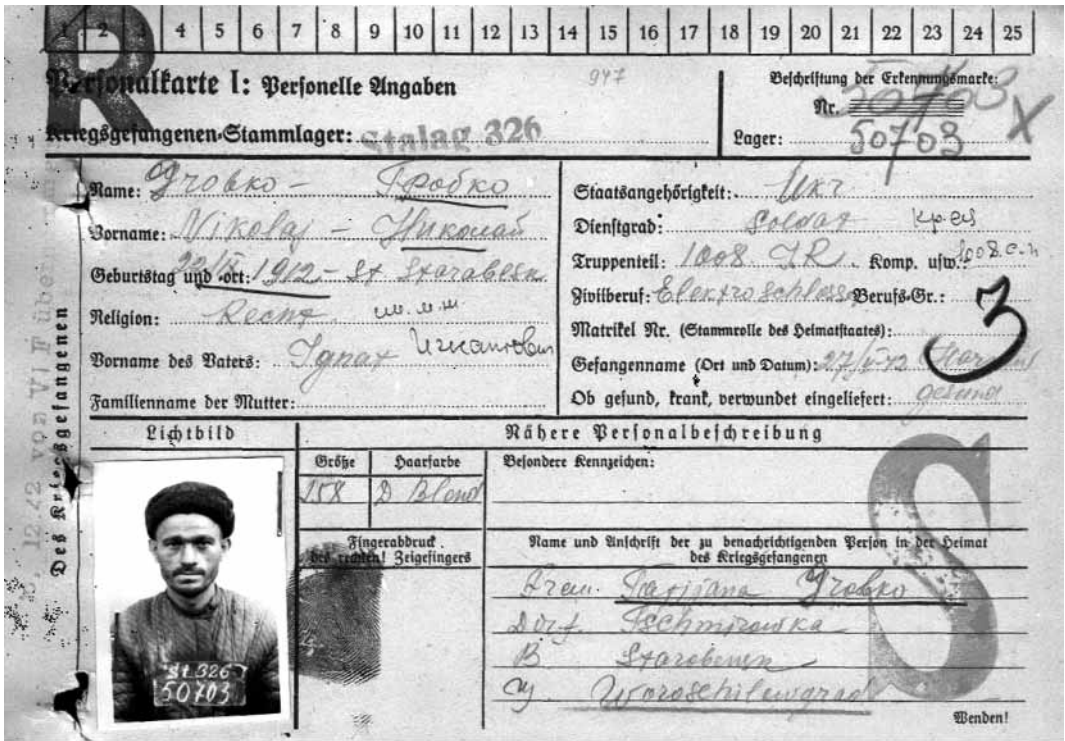 1 2 3 4 5 6 7 8 9 10 11 12 13 14 15 16 17 18 19 20 21 22 23 24 25
R
Personalkarte I: Personelle Angaben
947
Beschriftung der Erkennungsmarke:
Nr. 50703 X
Kriegsgefangenen-Stammlager: Stalag 326
Lager: 50703
Des Kriegsgefangenen
Name: Grobko - Гробко
Vorname: Nikolaj - Николай
Geburtstag und -ort: 1912 - St Starabesk
Religion:
Vorname des Vaters: Ignat
Familienname der Mutter:
Staatsangehörigkeit: Ukr
Dienstgrad: Soldat
Truppenteil: 1008 IR. Komp. usw.: 1008
Zivilberuf: Elektroschlosse Berufs-Gr.: 3
Matrikel Nr. (Stammrolle des Heimatstaates):
Gefangenname (Ort und Datum):
Ob gesund, krank, verwundet eingeliefert: gesund
Lichtbild
Nähere Personalbeschreibung
Größe Haarfarbe Besondere Kennzeichen:
158 D Blond
Fingerabdruck
des rechten! Zeigefingers
Name und Anschrift der zu benachrichtigenden Person in der Heimat
des Kriegsgefangenen
S
Tatjana Grobko
Dorf. Tschmirowka
Woroschilowgrad
Wenden!
St 326
50703